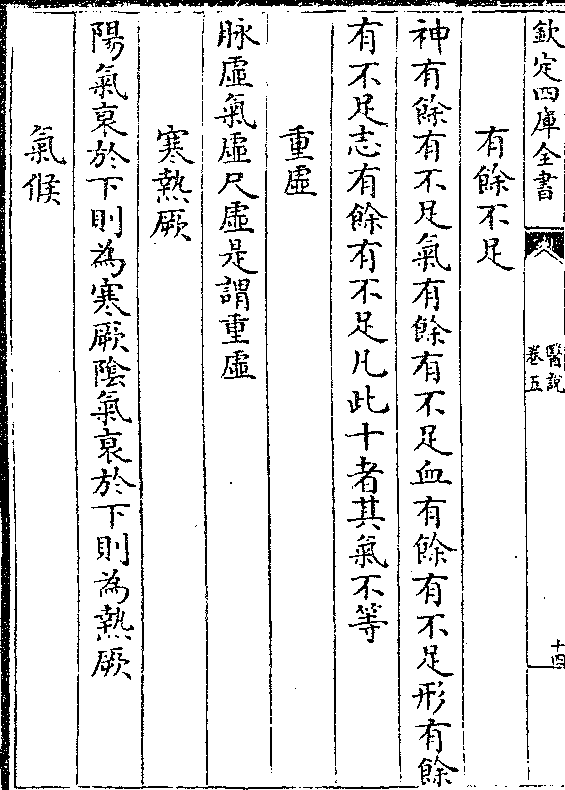 欽定四庫全書
醫說
卷五
十四
有餘不足
神有餘有不足氣有餘有不足血有餘有不足形有餘
有不足志有餘有不足凡此十者其氣不等
重虛
脉虛氣虛尺虛是謂重虛
寒熱厥
陽氣衰於下則為寒厥陰氣衰於下則為熱厥
氣候